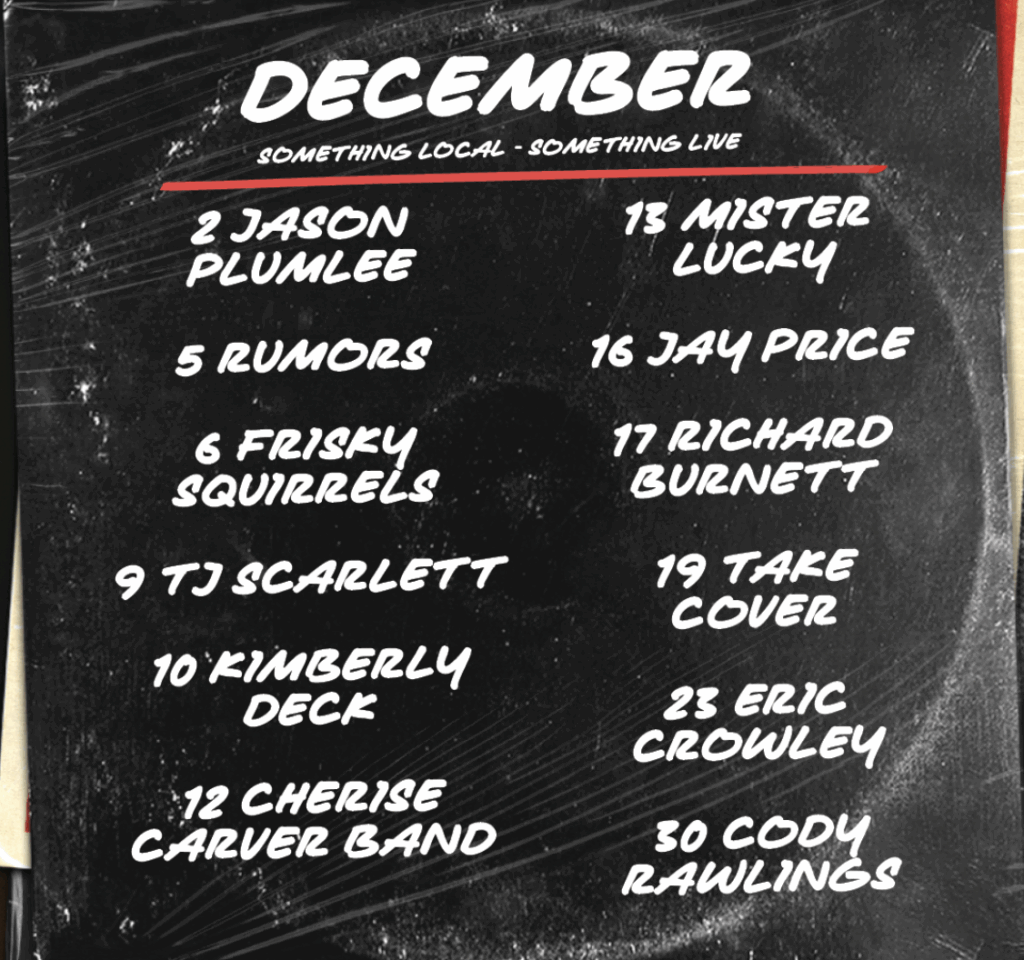 DECEMBER
SOMETHING LOCAL - SOMETHING LIVE
2 JASON
PLUMLEE
5 RUMORS
6 FRISKY
SQUIRRELS
9 TJ SCARLETT
10 KIMBERLY
DECK
12 CHERISE
CARVER BAND
13 MISTER
LUCKY
16 JAY PRICE
17 RICHARD
BURNETT
19 TAKE
COVER
23 ERIC
CROWLEY
30 CODY
RAWLINGS